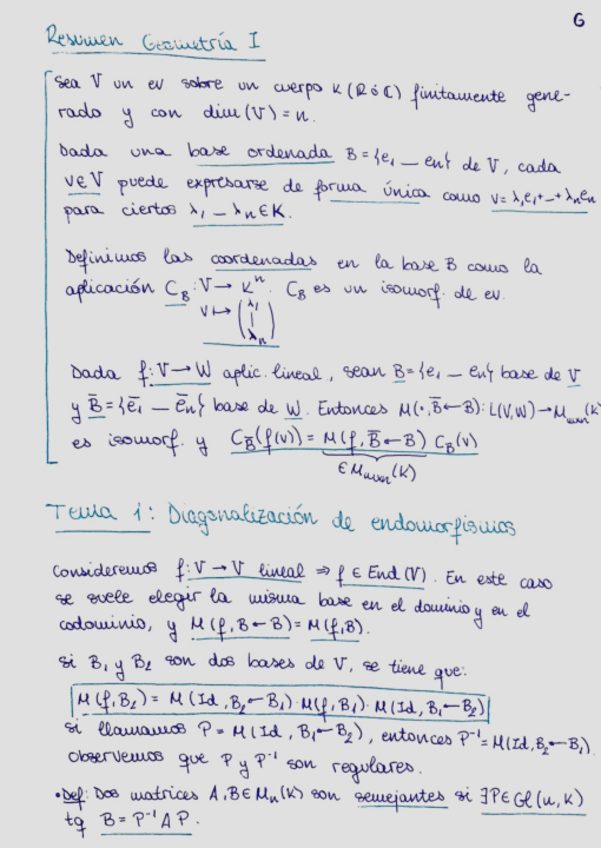 G
Resumen Geometría I
Sea V un ev sobre un cuerpo K (ℝ ó ℂ) finitamente gene-
rado y con dim(V) = n.
Dada una base ordenada B = {e₁ _ en} de V, cada
v∈V puede expresarse de forma única como v = λ₁e₁ + _ + λₙeₙ
para ciertos λ₁ _ λₙ ∈ K.
Definimos las coordenadas en la base B como la
aplicación C_B : V → Kⁿ. C_B es un isomorf. de ev.
v ↦ (λ₁ | λₙ)
Dada f: V → W aplic. lineal, sean B = {e₁ _ en} base de V
y B̄ = {ē₁ _ ēn} base de W. Entonces M(·, B̄ ← B): L(V,W) → M_mxn(K)
es isomorf. y C_B̄(f(v)) = M(f, B̄ ← B) C_B(v)
∈ M_mxn(K)
Tema 1: Diagonalización de endomorfismos
Consideremos f: V → V lineal ⇒ f ∈ End(V). En este caso
se suele elegir la misma base en el dominio y en el
codominio, y M(f, B ← B) = M(f, B).
Si B₁ y B₂ son dos bases de V, se tiene que:
M(f, B₂) = M(Id, B₂ ← B₁) · M(f, B₁) · M(Id, B₁ ← B₂)
Si llamamos P = M(Id, B₁ ← B₂), entonces P⁻¹ = M(Id, B₂ ← B₁).
Observemos que P y P⁻¹ son regulares.
• Def: Dos matrices A, B ∈ Mₙ(K) son semejantes si ∃P ∈ Gl(n, K)
tq B = P⁻¹ A P.